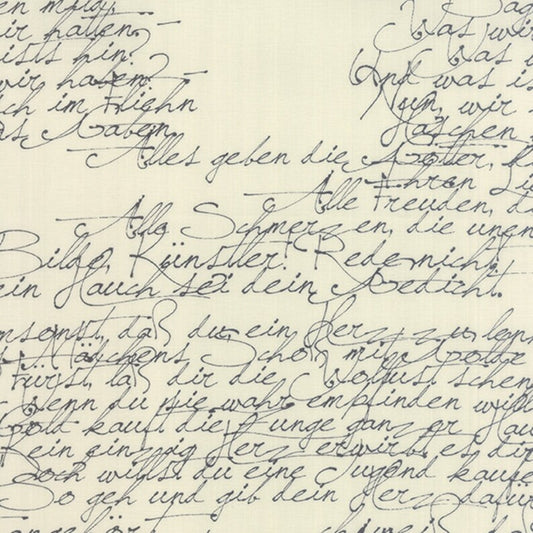 ir hatten
Was wir
ists hin
Was
wir haben
And was is
ich im
Nun, wir
Haben
Häschen
Alles geben die Götter,
Ihren Li
Alle Freuden, d
Alle Schmerzen, die unen
Bilde, Künstler! Rede nicht!
ein Hauch sei dein Gedicht.
msonst, daß du, ein Herz zu lenn
Mädchens Schoß mit Golde
Fürst, laß dir die Wollust schen
Wenn du sie wahr empfinden will
Gold kauft die Zunge ganzer Hau
Kein einzig Herz erwirbt es dir
Doch willst du eine Tugend kaufe
So geh und gib dein Herz dafür